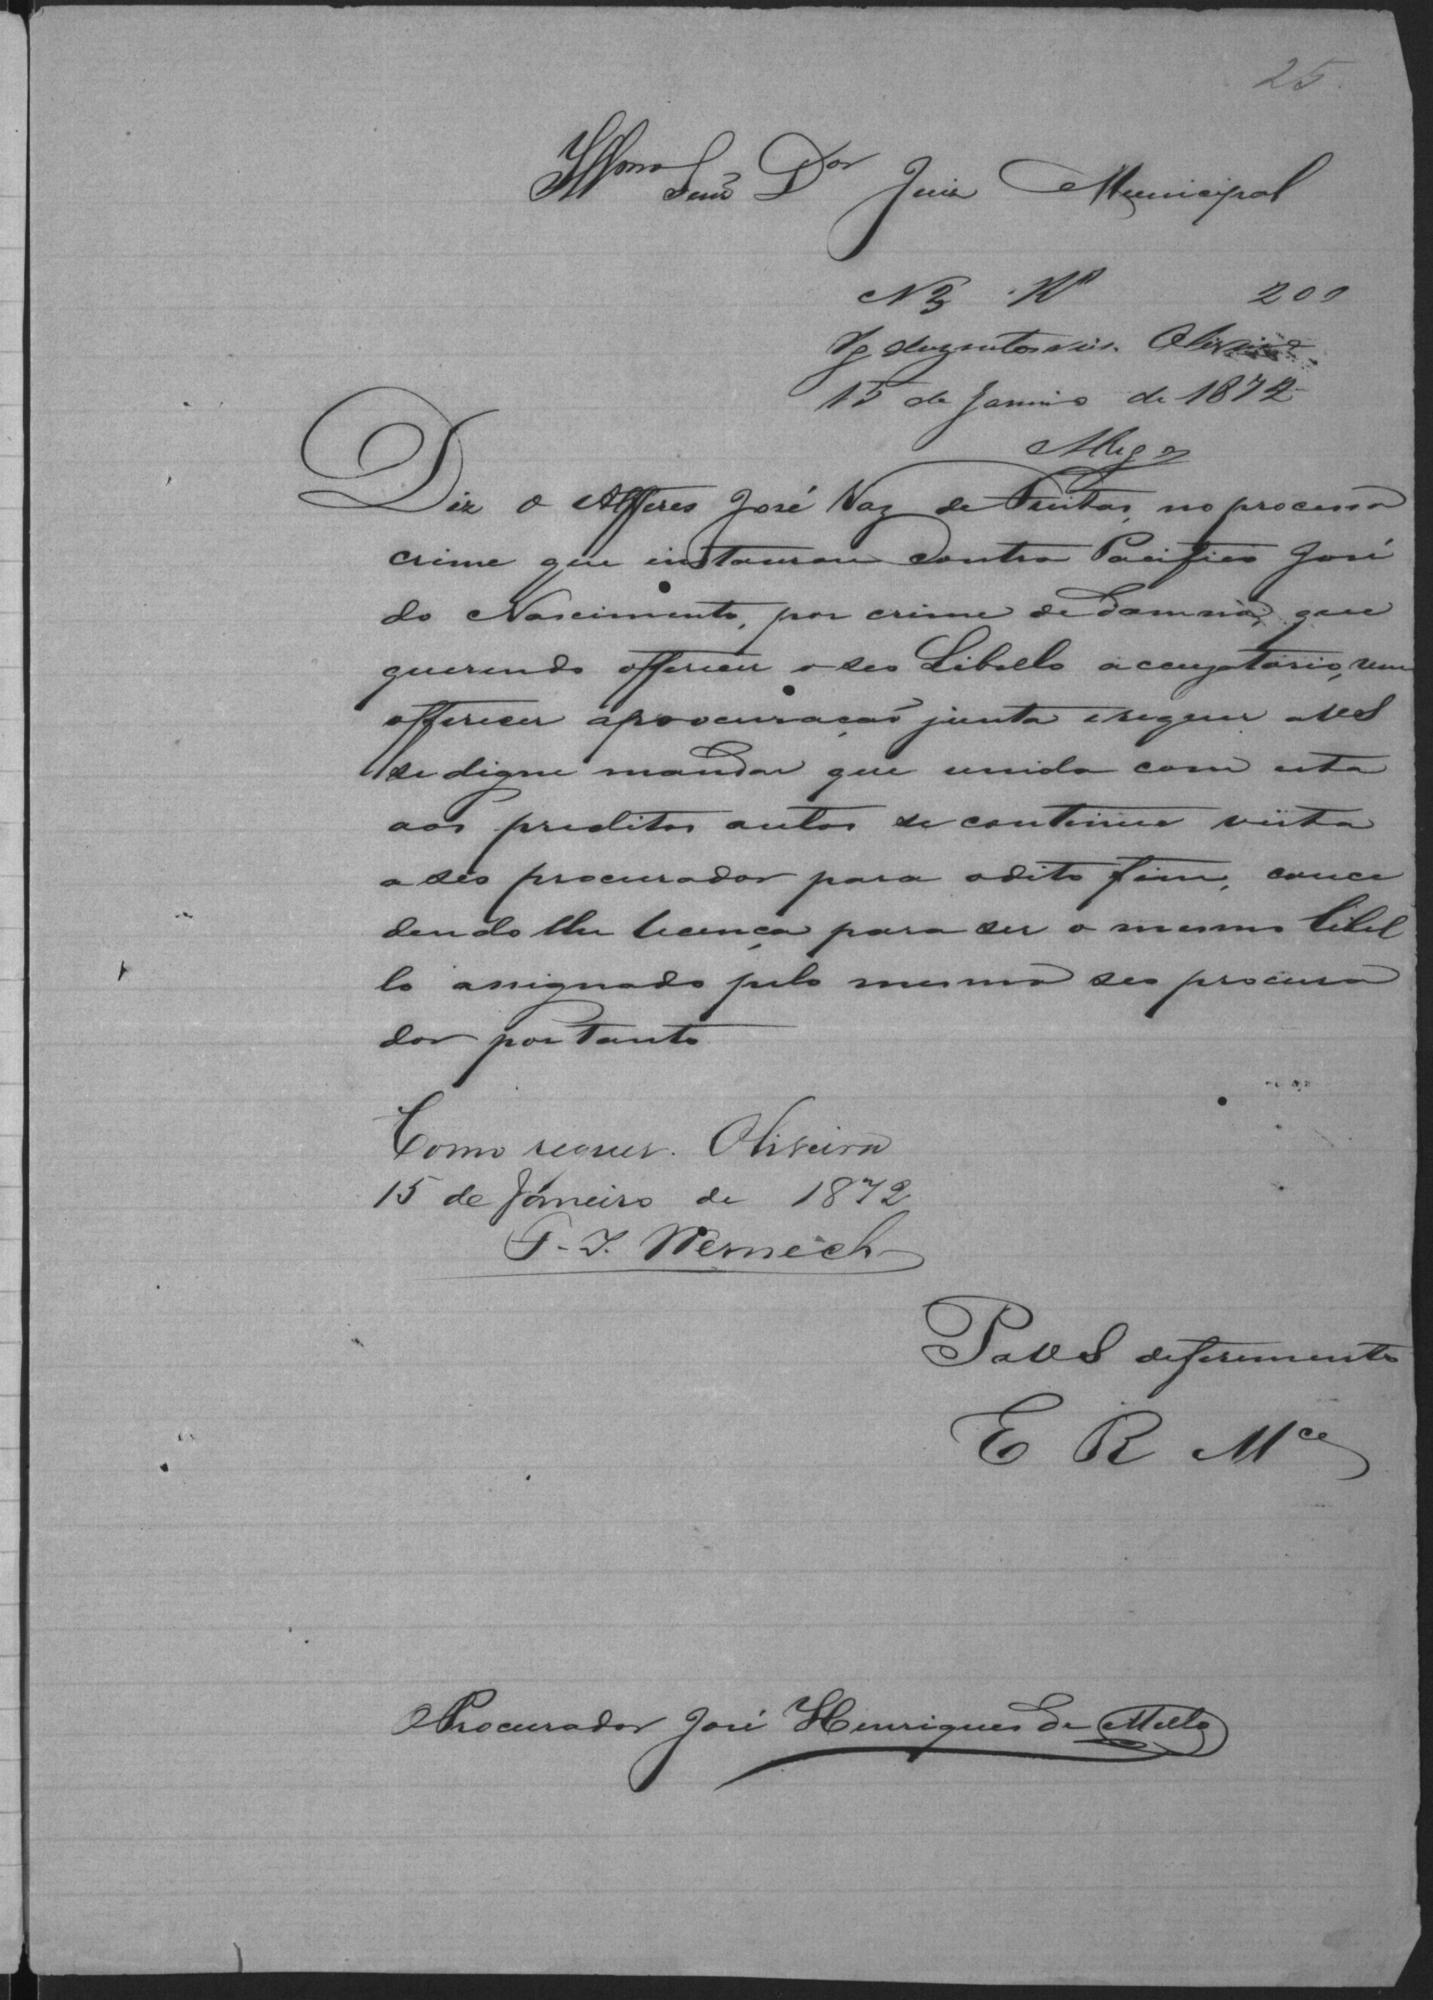 25
Illmo Senr Dor Juiz Municipal
N 3 Rs 200
Pg duzentos reis. Oliveira
15 de Janeiro de 1872
Diz o Alferes José Vaz de Freitas, no processo
crime que instaurou contra Pacifico José
do Nascimento, por crime de damno, que
querendo offerecer o seo Libello accuzatorio, vem
offerecer a procuração junta e requer a V S
se digne mandar que unida com esta
aos preditos autos se continue vista
a seo procurador para o dito fim, conce
dendo lhe licença para ser o mesmo libel
lo assignado pelo mesmo seo procura
dor portanto
Como requer. Oliveira
15 de Janeiro de 1872
F. J. Wernech
P a V S deferimento
E R Mce
O Procurador José Henriques de Mello